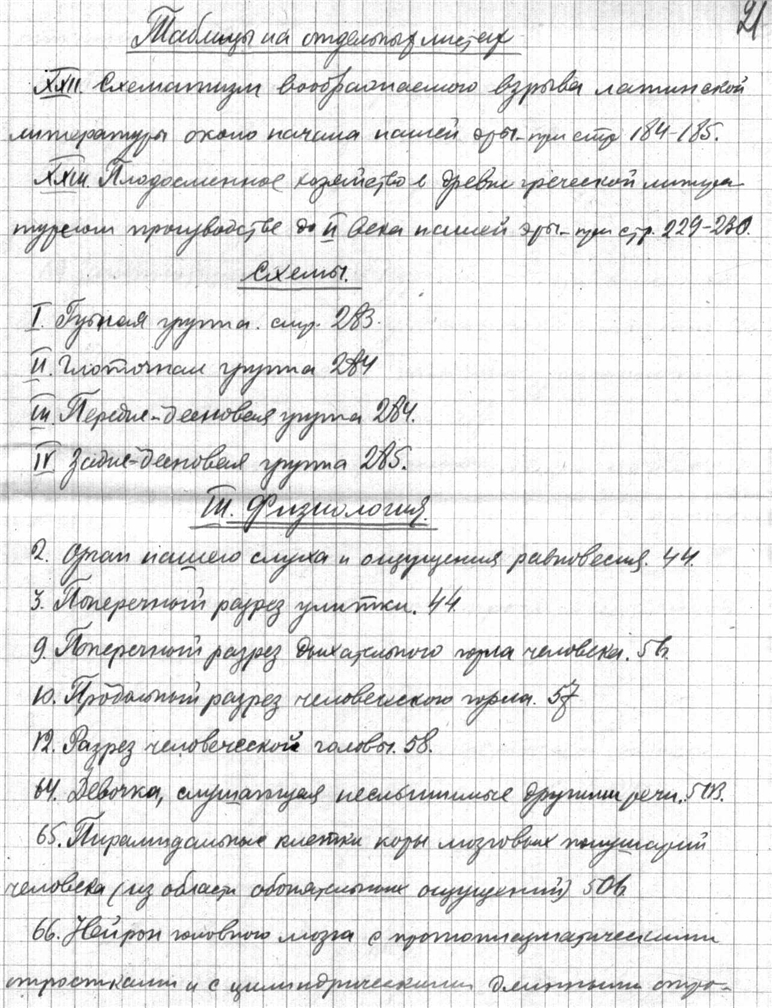 21
Таблицы на отдельных листах
XXII. Схематизм воображаемого взрыва латинской
литературы около начала нашей эры - при стр 184-185.
XXIII. Плодосменное хозяйство в древне греческой литера-
турном производстве до II века нашей эры - при стр. 229-230.
Схемы.
I. Губная группа. стр. 283.
II. Глоточная группа 284
III. Передне-десновая группа 284.
IV Задне-десновая группа 285.
III. Физиология.
2. Орган нашего слуха и ощущения равновесия. 44.
3. Поперечный разрез улитки. 44
9. Поперечный разрез дыхательного горла человека. 56.
10. Продольный разрез человеческого горла. 57
12. Разрез человеческой головы. 58.
64. Девочка, слушающая неслышимые другими речи. 503.
65. Пирамидальные клетки коры мозговых полушарий
человека (из области обонятельных ощущений) 506
66. Нейрон головного мозга с протоплазматическими
отростками и с цилиндрическими длинными отро-